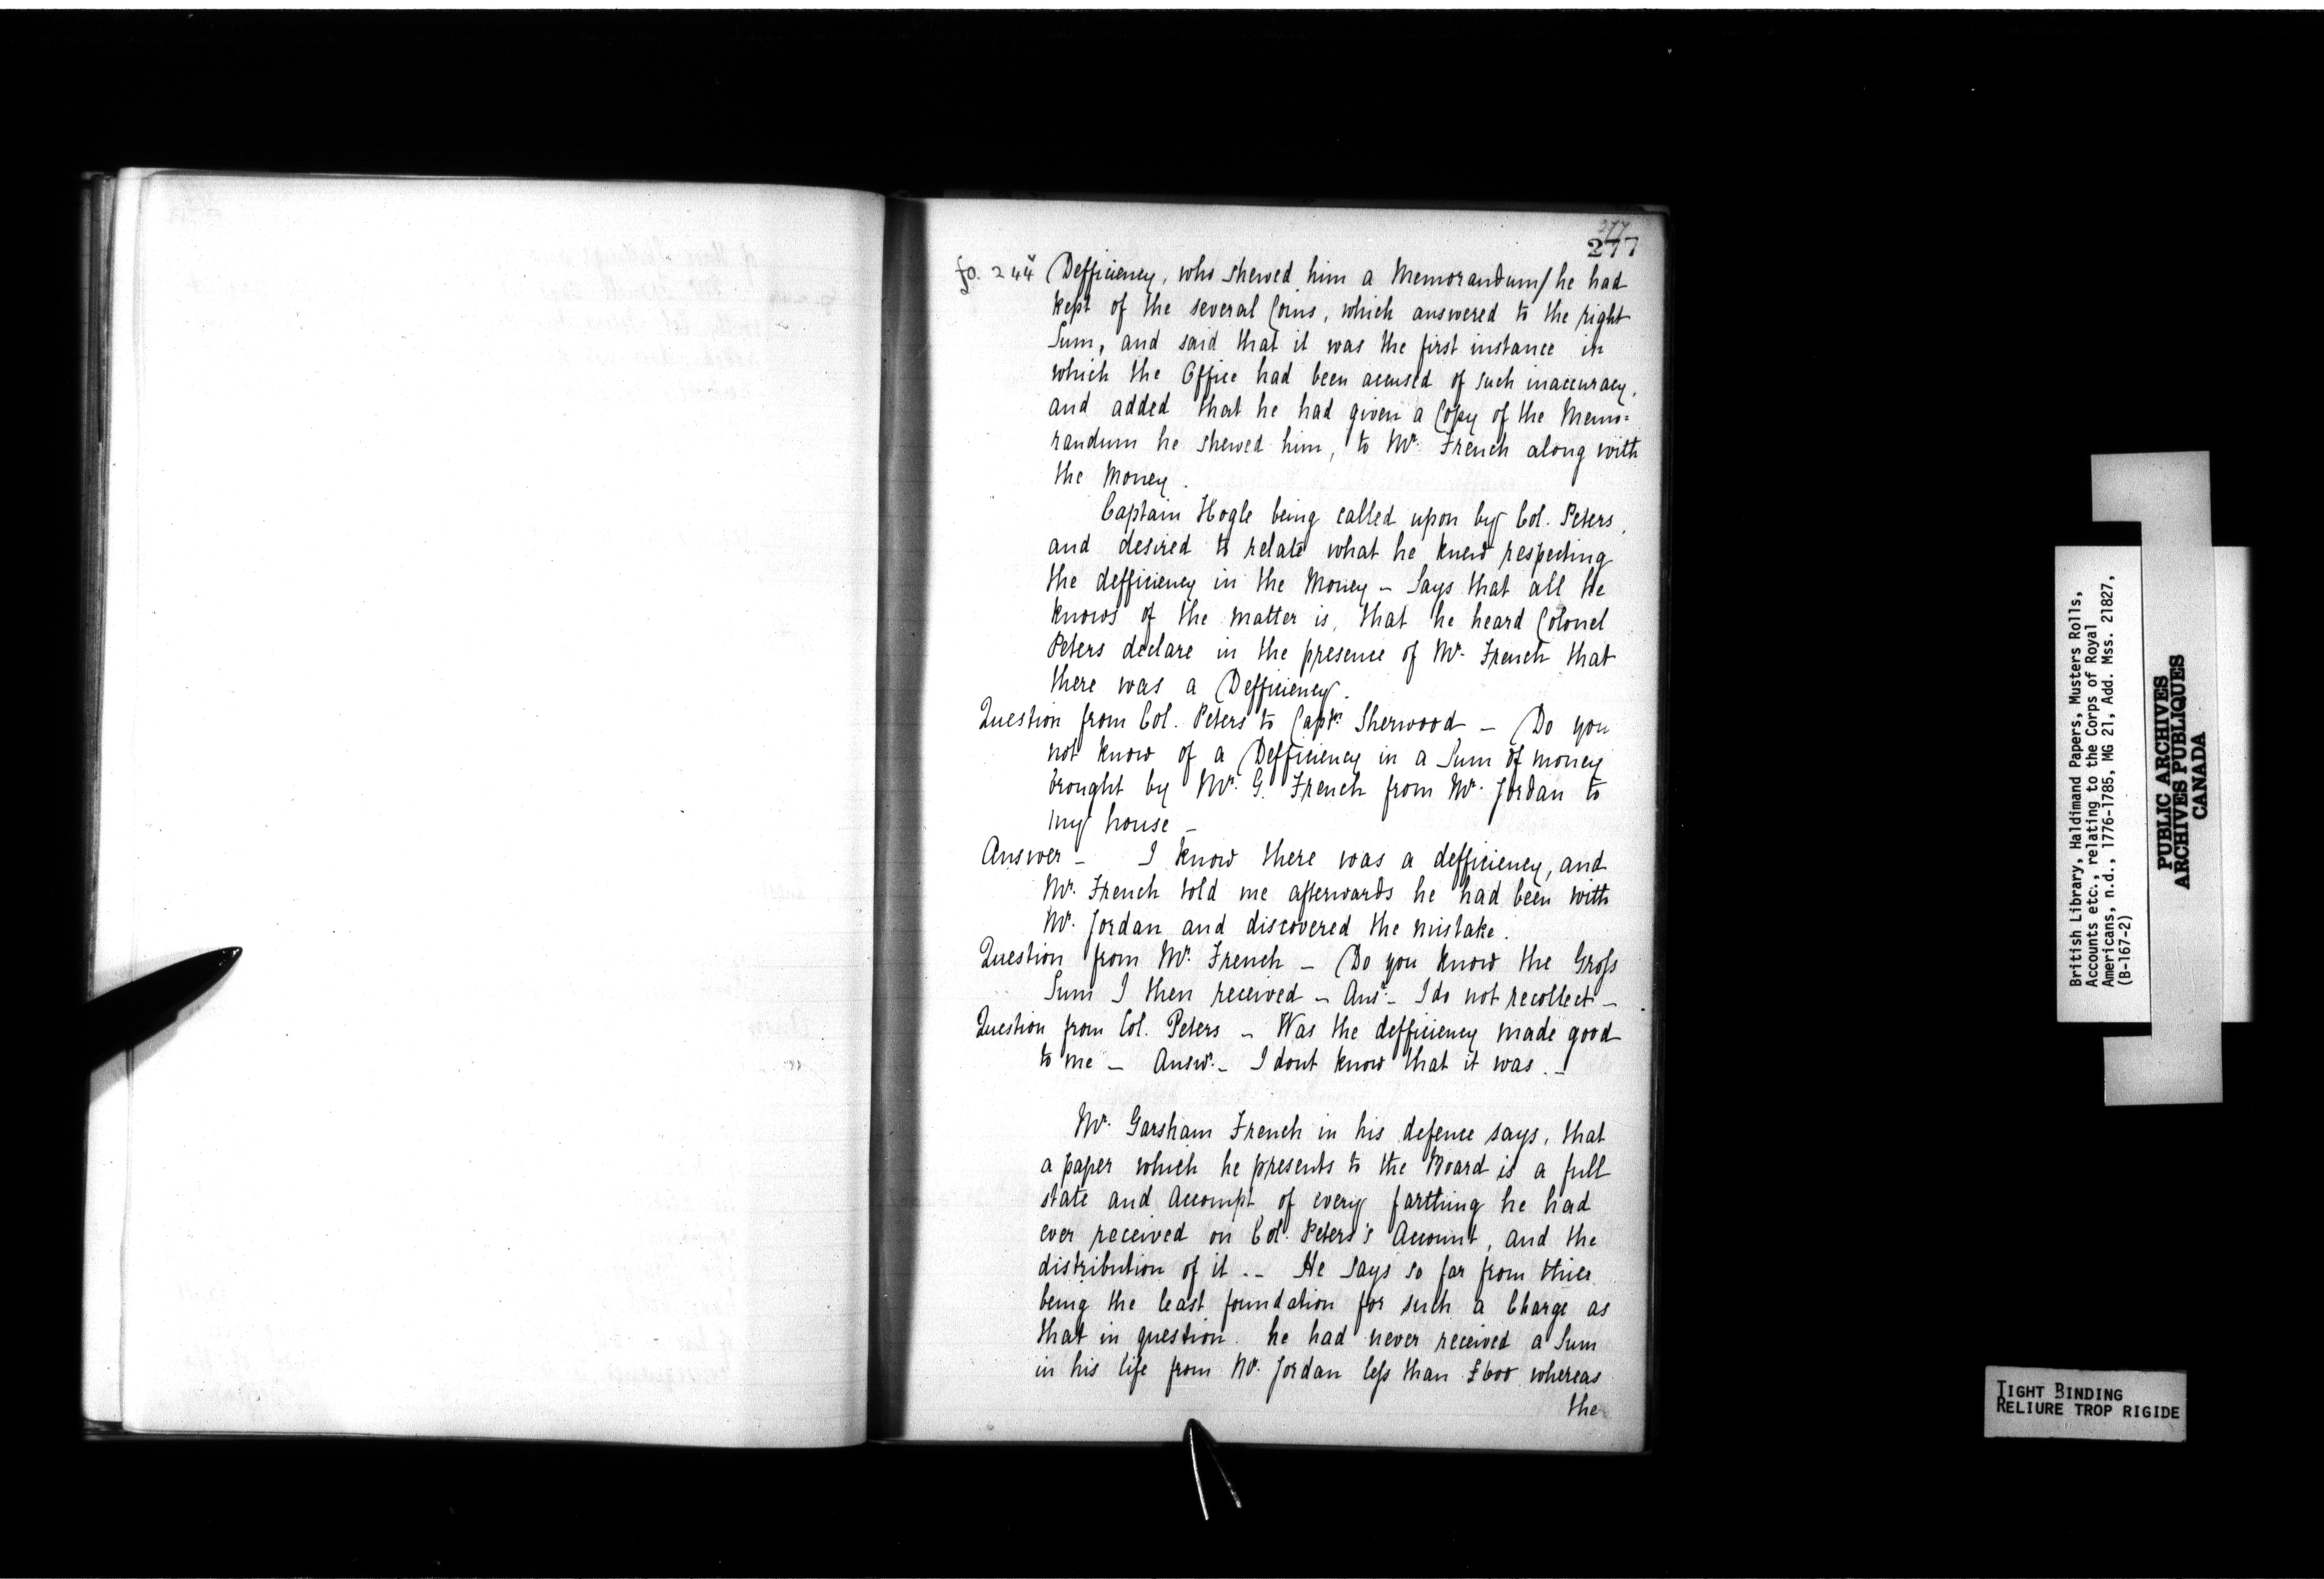 277
277
fo. 244 Defficiency, who shewed him a Memorandum / he had
kept of the several Coins, which answered to the right
Sum, and said that it was the first instance in
which the Office had been accused of such inaccuracy,
and added that he had given a Copy of the Memo=
randum he shewed him, to Mr. French along with
the Money.
Captain Hogle being called upon by Col. Peters,
and desired to relate what he knew respecting
the defficiency in the Money – Says that all he
knows of the matter is, that he heard Colonel
Peters declare in the presence of Mr. French that
there was a Defficiency.
Question from Col. Peters to Captn. Sherwood – Do you
not know of a Defficiency in a Sum of money
brought by Mr. G. French from Mr. Jordan to
my house –
Answer – I know there was a defficiency, and
Mr. French told me afterwards he had been with
Mr. Jordan and discovered the mistake.
Question from Mr. French – Do you know the Gross
Sum I then received – Ansr. – I do not recollect –
Question from Col. Peters – Was the defficiency made good
to me – Answr. – I dont know that it was. –
Mr. Garsham French in his defence says, that
a paper which he presents to the Board is a full
state and Accompt of every farthing he had
ever received on Col. Peters's Account, and the
distribution of it. – He says so far from
being the least foundation for such a Charge as
that in question. he had never received a Sum
in his life from Mr. Jordan less than £600 whereas
the
British Library, Haldimand Papers, Musters Rolls,
Accounts etc., relating to the Corps of Royal
Americans, n.d., 1776-1785, MG 21, Add. Mss. 21827,
(B-167-2)
PUBLIC ARCHIVES
ARCHIVES PUBLIQUES
CANADA
TIGHT BINDING
RELIURE TROP RIGIDE